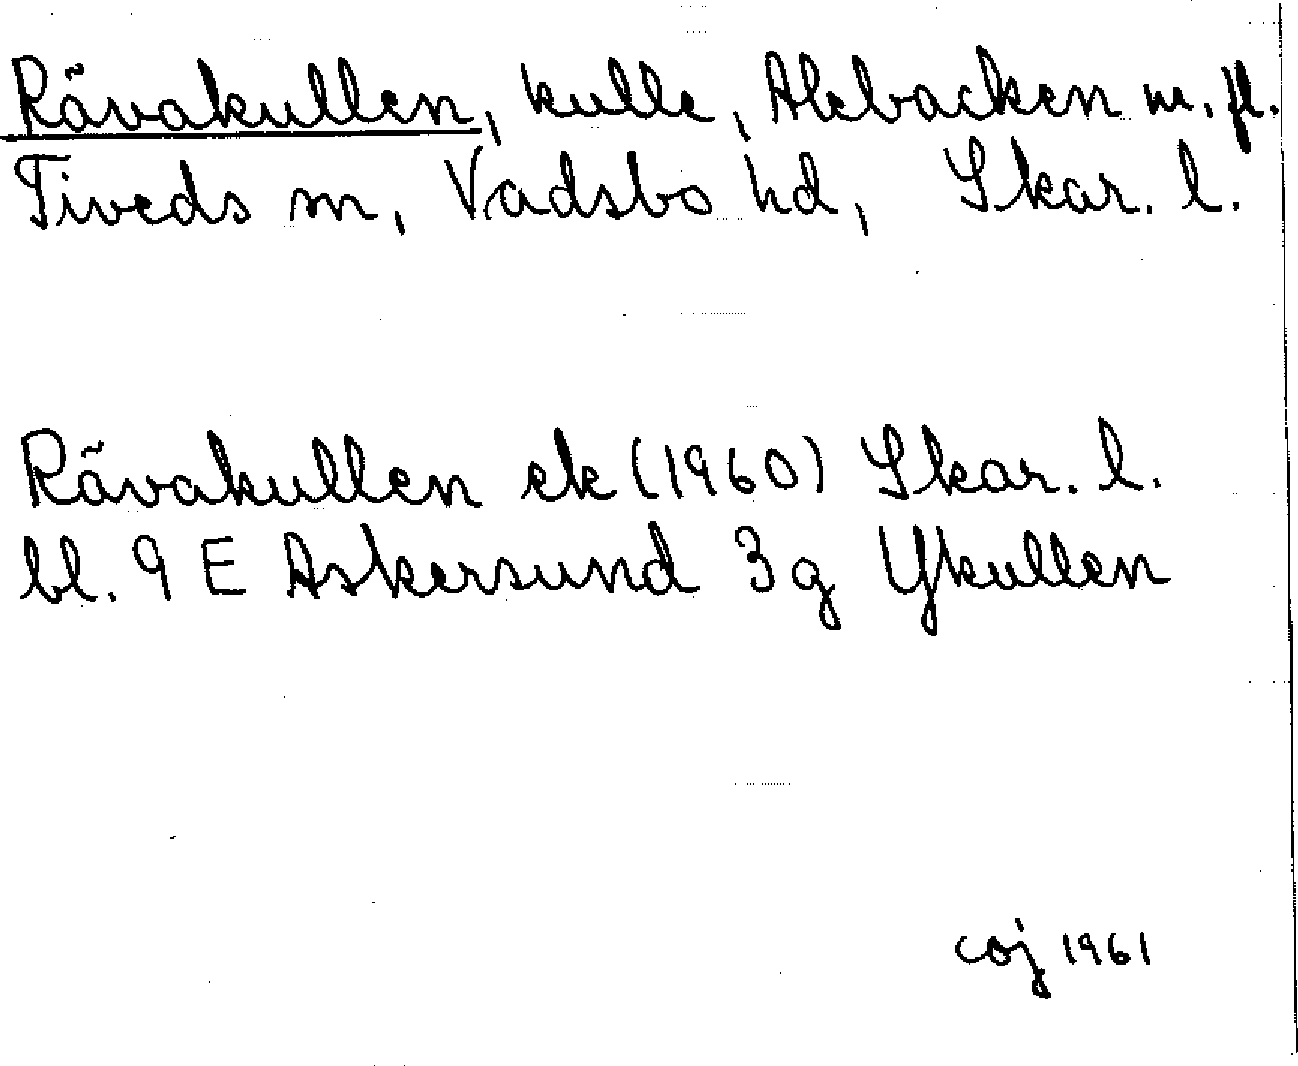 Rävakullen, kulle, Alebacken m. fl.
Tiveds sn, Vadsbo hd, Skar. l.
Rävakullen ek (1960) Skar. l.
bl. 9 E Askersund 3g Ykullen
coj 1961